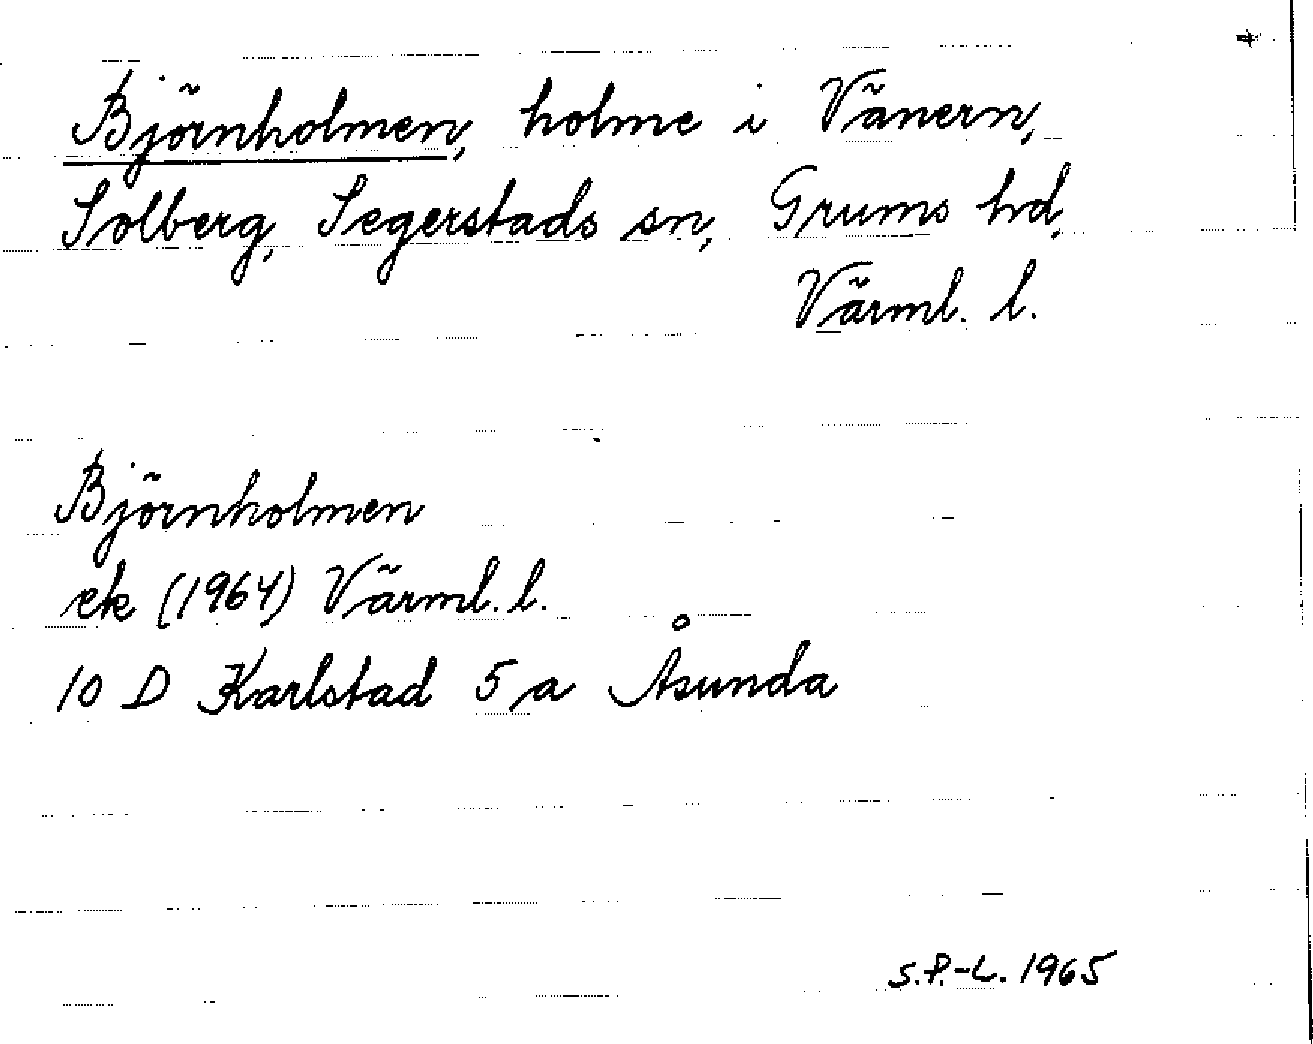 Björnholmen, holme i Vänern,
Solberg, Segerstads sn, Grums hd,
Värml. l.
Björnholmen
ek (1964) Värml. l.
10 D Karlstad 5 a Åsunda
S.P.-L. 1965